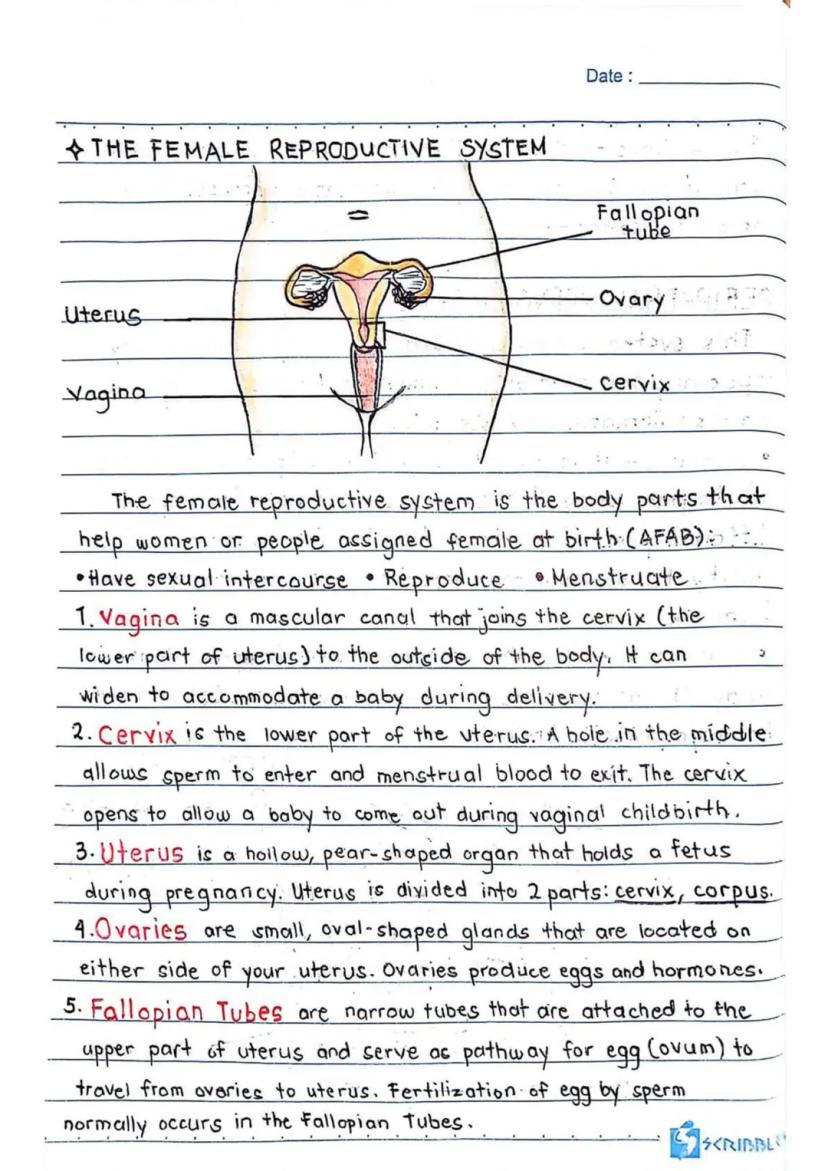 Date :
✧ THE FEMALE REPRODUCTIVE SYSTEM
Fallopian
tube
Ovary
Uterus
cervix
Vagina
The female reproductive system is the body parts that
help women or people assigned female at birth (AFAB):
• Have sexual intercourse • Reproduce • Menstruate
1. Vagina is a mascular canal that joins the cervix (the
lower part of uterus) to the outside of the body. It can
widen to accommodate a baby during delivery.
2. Cervix is the lower part of the uterus. A hole in the middle
allows sperm to enter and menstrual blood to exit. The cervix
opens to allow a baby to come out during vaginal childbirth.
3. Uterus is a hollow, pear-shaped organ that holds a fetus
during pregnancy. Uterus is divided into 2 parts: cervix, corpus.
4. Ovaries are small, oval-shaped glands that are located on
either side of your uterus. Ovaries produce eggs and hormones.
5. Fallopian Tubes are narrow tubes that are attached to the
upper part of uterus and serve as pathway for egg (ovum) to
travel from ovaries to uterus. Fertilization of egg by sperm
normally occurs in the Fallopian Tubes.